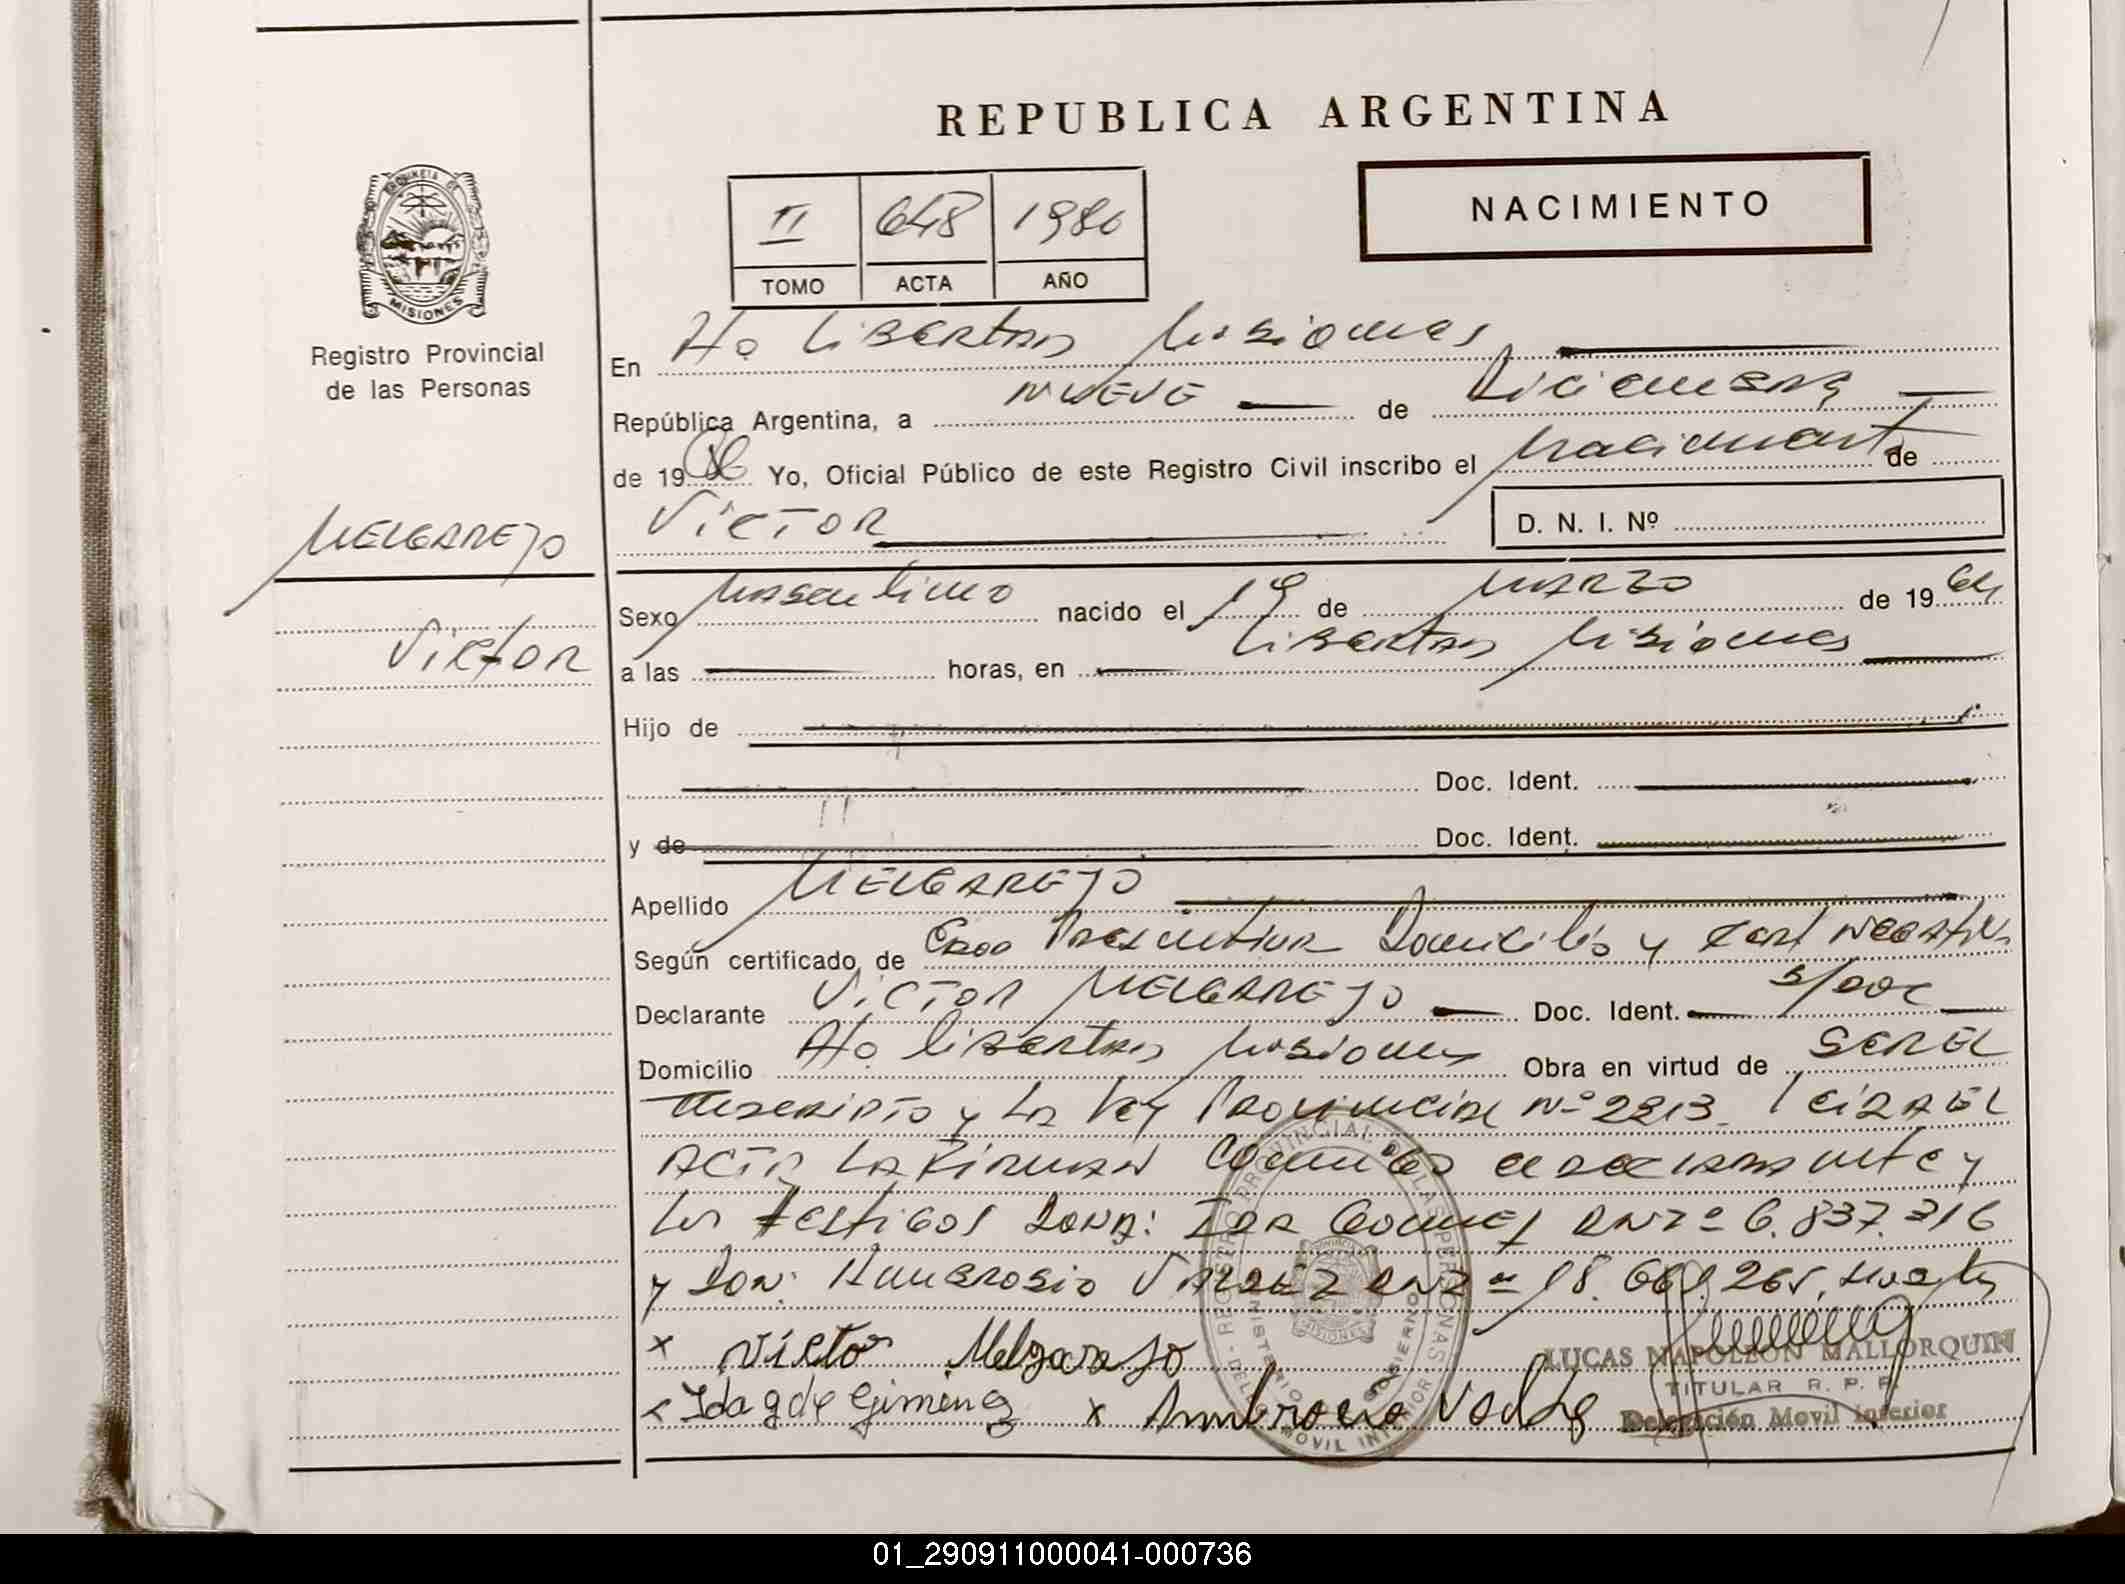 REPUBLICA ARGENTINA
NACIMIENTO
II 648 1986
TOMO ACTA AÑO
PROVINCIA DE MISIONES
Registro Provincial
de las Personas
En Aº Libertad Misiones
República Argentina, a nueve de Diciembre
de 1986 Yo, Oficial Público de este Registro Civil inscribo el nacimiento de
Victor
D. N. I. Nº
MELGAREJO
Victor
Sexo masculino nacido el 19 de marzo de 1964
a las horas, en Libertad Misiones
Hijo de
Doc. Ident.
y de Doc. Ident.
Apellido MELGAREJO
Según certificado de Edad Presuntiva Domicilio y Cert Negativo
Declarante Victor MELGAREJO Doc. Ident. s/doc
Domicilio Aº Libertad Misiones Obra en virtud de SER EL
inscripto y La Ley Provincial Nº 2213. Leida EL
ACTA LA FIRMAN conmigo el declarante y
los testigos Doña: IDA Gomez DNIº 6.837.316
y Don: Ambrosio VALDEZ DNIº 18.661.265.
x Victor Melgarejo
x Ida g de Gimenez x Ambrocio Valdez
LUCAS NAPOLEON MALLORQUIN
TITULAR R. P. P.
Delegación Movil Interior
REGISTRO PROVINCIAL DE LAS PERSONAS
MINISTERIO GOBIERNO
DELEG MOVIL INTERIOR
01_290911000041-000736